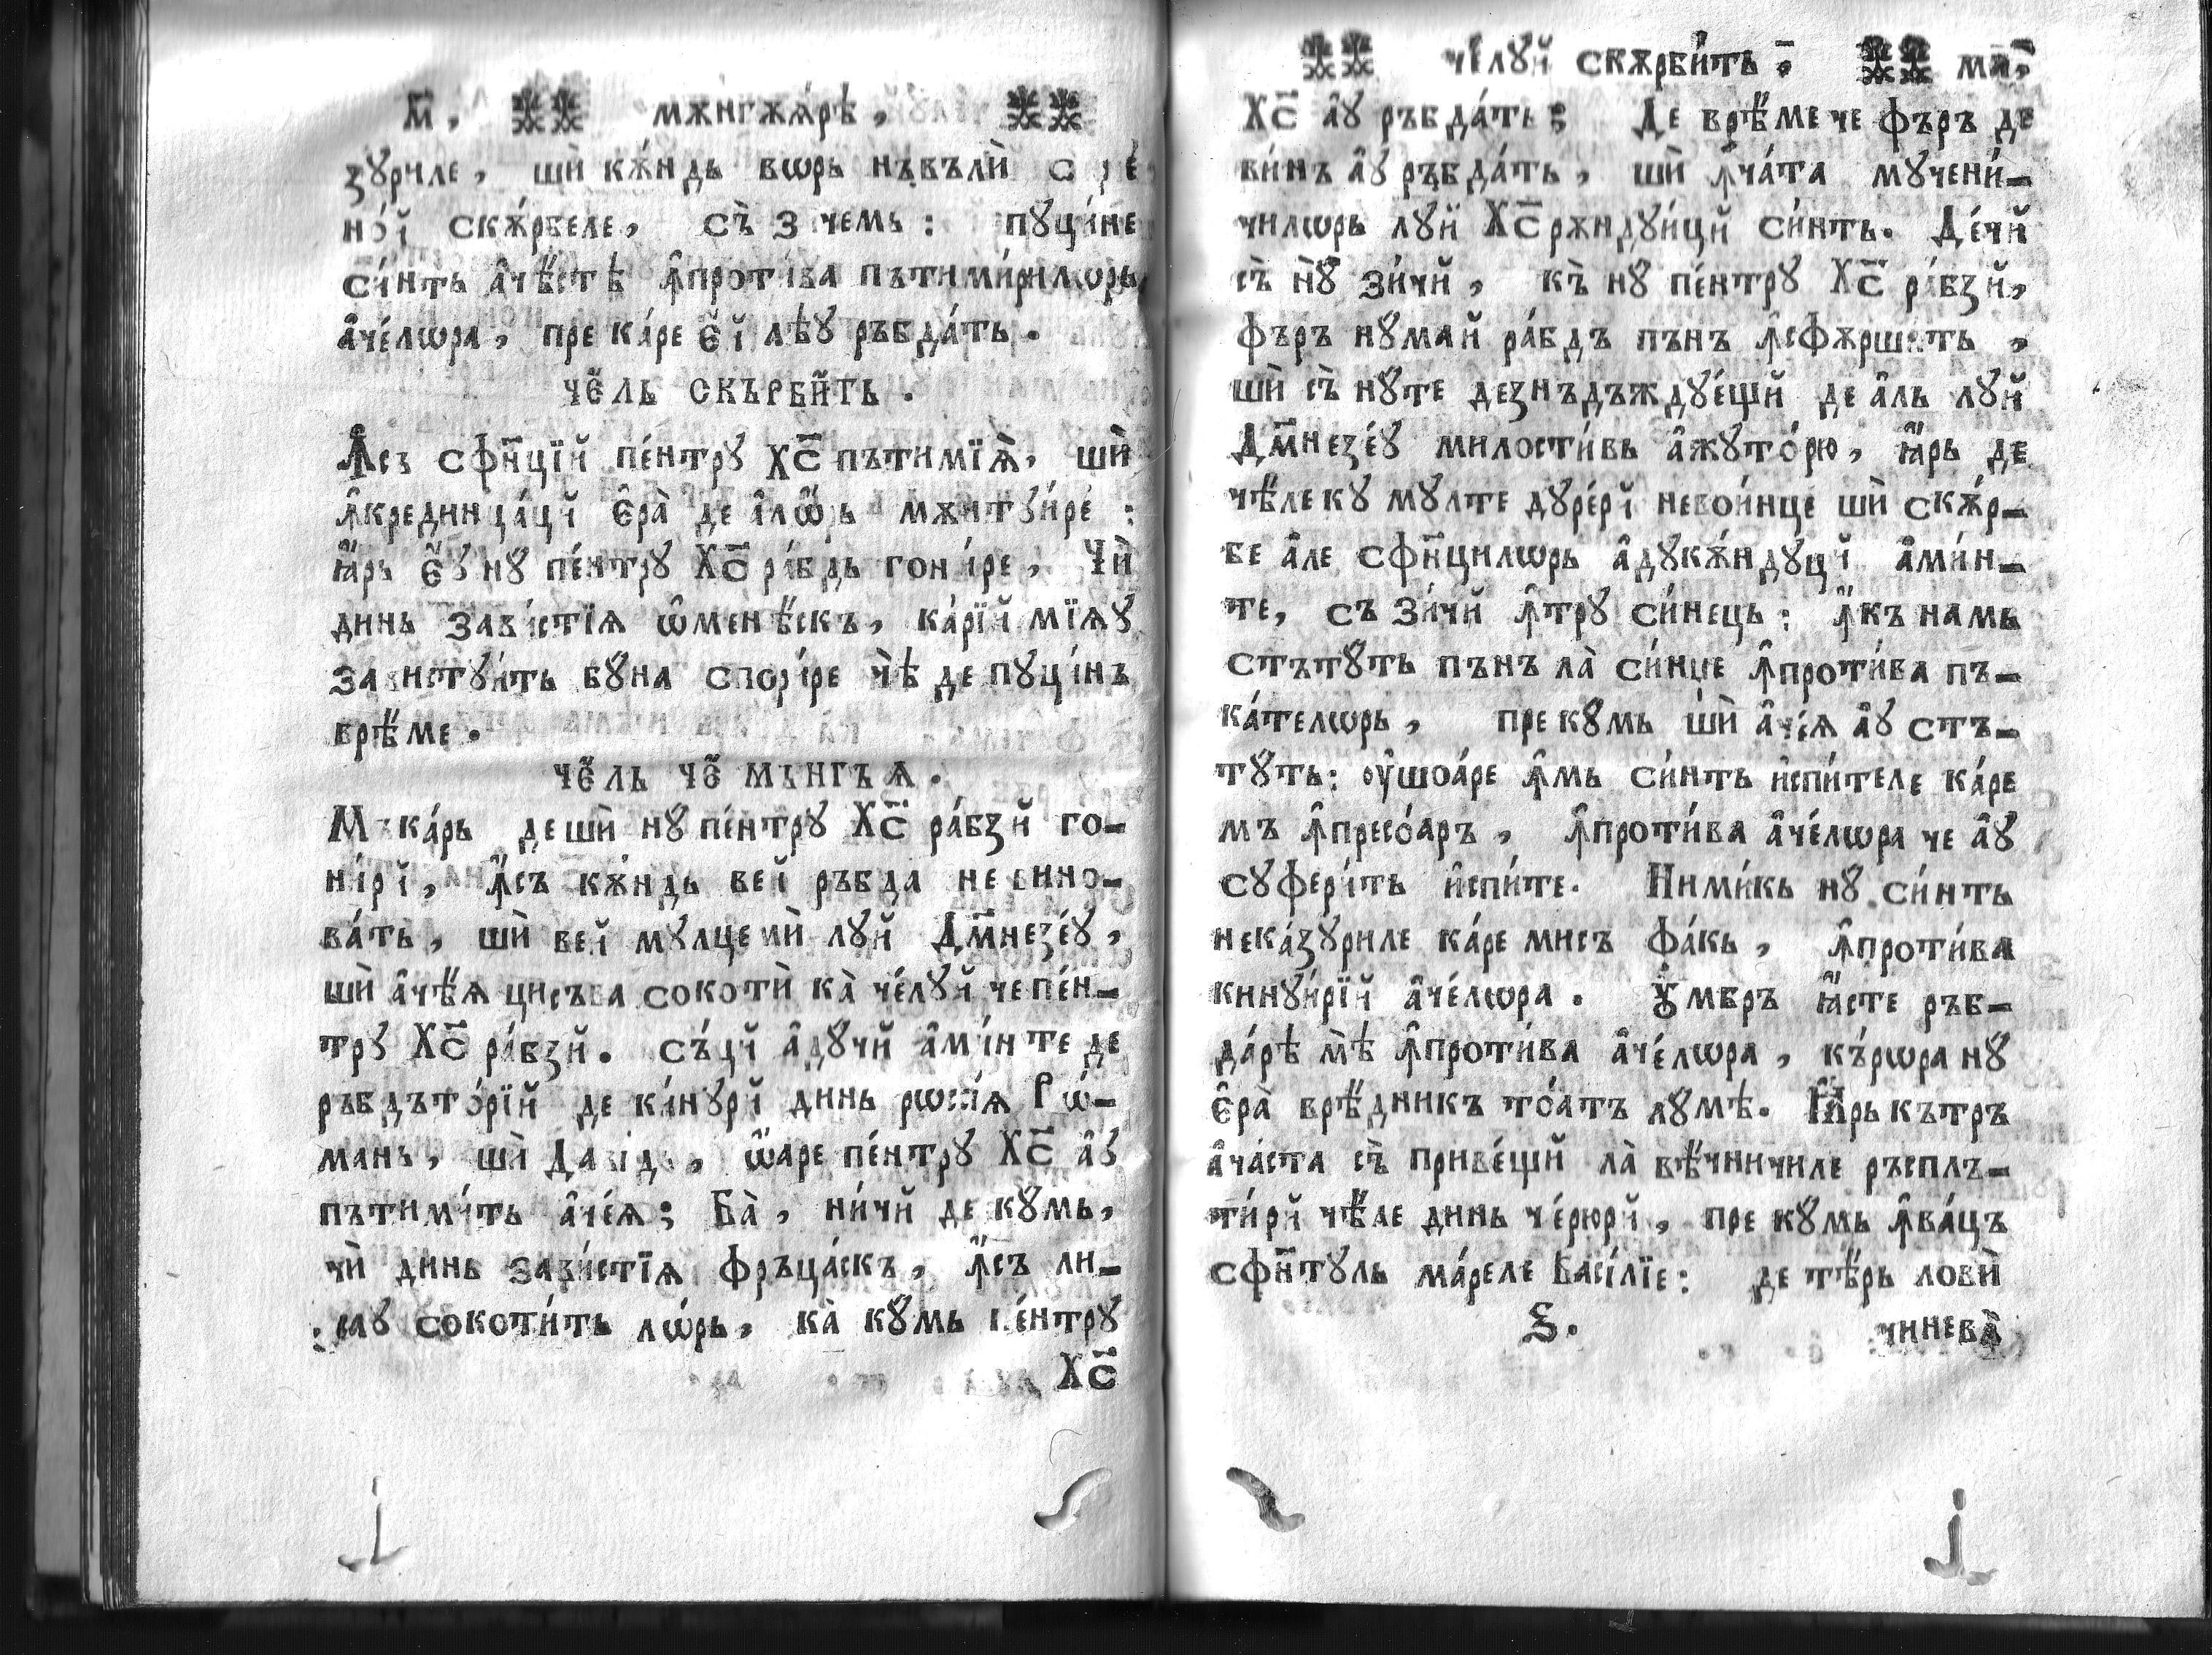 м҃, мѫнгѫѧ́рѣ,
зꙋриле, шѝ кѫ́ндь вѡрь нъвълѝ
но́й скѫ́рбеле, съ̀ зичемь: пꙋци́не
си́нть а҆чѣ́стѣ ꙟ҆проти́ва пътими́рилѡрь
а҆че́лѡра, пре ка́ре є҆́й лѣꙋ ръбда́ть.
че́ль скърби́ть.
Ꙟ҆съ сфн҃ції пе́нтрꙋ хс҃ пътимїѧ̀, шѝ
ꙟ҆крединца́цй є҆ра̀ де а҆лѡ́рь мѫнтꙋи́ре:
ꙗ҆́рь є҆́ꙋ нꙋ пе́нтрꙋ Хс҃ ра́бдь гони́ре, Чѝ
динь зави́стїѧ ѡ҆менѣ́скъ, ка́рїй мїѧꙋ
завистꙋи́ть бꙋ́на спори́ре чѣ̀ де пꙋци́нъ
врѣ́ме.
че́ль че́ мънгъѧ.
Мъка́рь де шѝ нꙋ пе́нтрꙋ Хс҃ ра́бзй го-
ни́рй, ꙟ҆́съ кѫ́ндь вей ръбда невино-
ва́ть, шѝ вей мꙋлцемѝ лꙋй Дм҃незе́ꙋ,
шѝ а҆чѣ́ѧ цисъва сокотѝ ка̀ че́лꙋй че пе́н-
трꙋ Хс҃ ра́бзй. съ́цй а҆дꙋчй а҆ми́нте де
ръбдъто́рїй де ка́нꙋрй динь рѡсі́ѧ Рѡ́-
мань, шѝ Давідь, ѡ҆́аре пе́нтрꙋ Хс҃ а҆́ꙋ
пътими́ть а҆че́ѧ; Ба̀, ни́чй де кꙋмь,
чѝ динь зави́стїѧ фръца́скъ, ꙟ҆́съ ли-
саꙋ сокоти́ть лѡ́рь, ка̀ кꙋмь пе́нтрꙋ
Хс҃
че́лꙋй скѫрби́ть. ма҃,
Хс҃ а҆́ꙋ ръбда́ть; Де врѣ́ме че фъръ де
ви́нъ а҆́ꙋ ръбда́ть, шѝ ꙟ҆ча́та мꙋчени́-
чилѡрь лꙋй Хс҃ рѫндꙋи́цй си́нть. Де́чй
съ̀ нꙋ̀ зи́чй, къ нꙋ пе́нтрꙋ Хс҃ ра́бзй,
фъръ нꙋмай ра́бдъ пънъ ꙟ҆сфѫршить,
шѝ съ̀ нꙋте дезнъдъждꙋе́щй де а҆ль лꙋй
Дм҃незе́ꙋ милости́вь а҆жꙋто́рю, ꙗ҆́рь де
чѣ́ле кꙋ мꙋлте дꙋре́рй невои́нце шѝ скѫ́р-
бе а҆ле сфн҃цилѡрь а҆дꙋкѫ́ндꙋцй а҆ми́н-
те, съ зи́чй ꙟ҆трꙋ си́нець: ꙟ҆́къ намь
стътꙋ́ть пънъ ла̀ си́нџе ꙟ҆проти́ва пъ-
ка́телѡрь, прекꙋмь шѝ а҆че́ѧ а҆́ꙋ стъ-
тꙋ́ть: ᲂу҆шоа́ре ꙟ҆мь си́нть и҆спи́теле ка́ре
мъ ꙟ҆пресо́аръ, ꙟ҆проти́ва а҆че́лѡра че а҆́ꙋ
сꙋфери́ть и҆спи́те. Ними́кь нꙋ си́нть
нека́зꙋриле ка́ре мисъ фа́кь, ꙟ҆проти́ва
кинꙋи́рїй а҆че́лѡра. Ꙋ҆́мбръ ꙗ҆́сте ръб-
да́рѣ мѣ̀ ꙟ҆проти́ва а҆че́лѡра, къ́рѡра нꙋ
є҆ра̀ врѣ́дникъ то́атъ лꙋмѣ. Ꙗ҆́рь кътръ
а҆ча́ста съ̀ приве́щй ла̀ вѣ́чничиле ръсплъ-
ти́рй чѣ́ле динь че́рюрй, пре кꙋмь ꙟ҆ва́цъ
сфн҃тꙋль ма́реле Васі́лїе: де тѣ́рь ловѝ
Ѕ. чинева̀